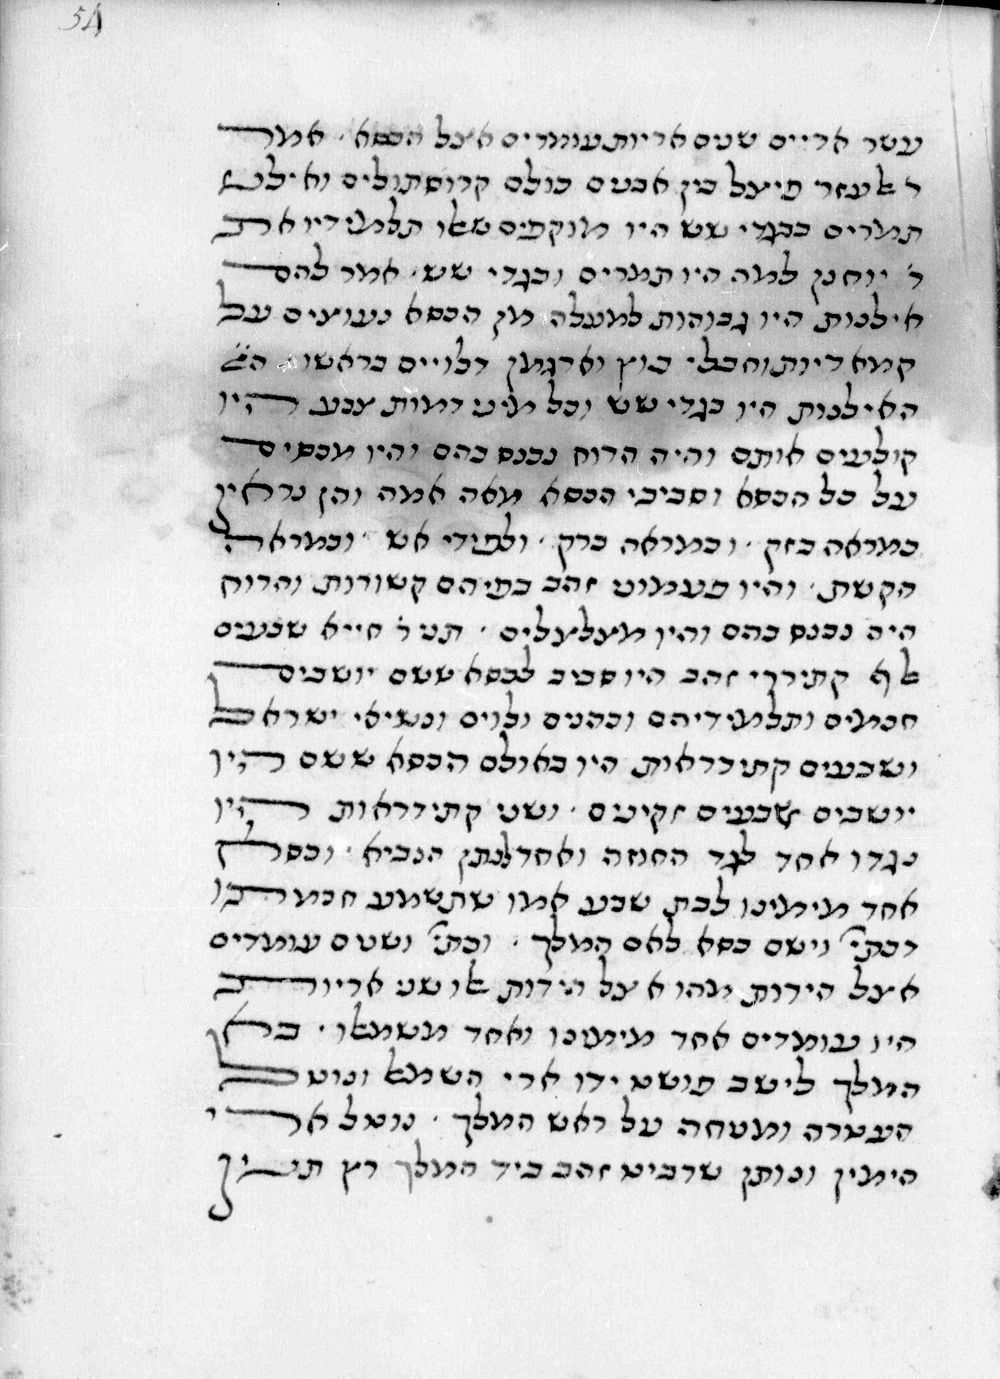 54
עשר אריים שנים אריות עומדים אצל הכסא · אמר
ר אלעזר פיצל בין אבנים כולם קרוסתולים ואילני
תמרים בבגדי שש היו מוקפים שאלו תלמידיו את
ר׳ יוחנן למה היו תמרים ובגדי שש · אמר להם
אילנות היו גבוהות למעלה מן הכסא נעוצים על
בוץ וארגמן דלויים בראשו
האילנות היו בגדי שש וכל מיני דמות צבע היו
קולעים אותם והיה הרוח נכנס בהם והיו מכסים
על כל הכסא וסביבי הכסא מאה אמה והן נראין
כמראה בזק · וכמראה ברק · ולפידי אש · וכמראה
הקשת · והיו פעמוני זהב בפיהם קשורות והרוח
היה נכנס בהם והין מצלצלים · תני ר׳ חייא שבעים
אלף קתידרי זהב היו סביב לכסא ששם יושבים
חכמים ותלמידיהם וכהנים ולוים ונשיאי ישראל
ושבעים קתידראות היו באולם הכסא ששם היו
יושבים שבעים זקינים · ושני קתידראות היו
נגדו אחד לגד החוזה ואחד לנתן הנביא · וכסא
אחד מימינו לבת שבע אמו שתשמע חכמתו
דכתי׳ וישם כסא לאם המלך · וכתי׳ ושנים עומדים
אצל הידות מהו אצל הידות אלו שני אריות
היו עומדים אחד מימינו ואחד משמאלו · בא
המלך לישב פושט ידו ארי השמאל ונוטל
העטרה ומניחה על ראש המלך · נוטל ארי
הימין ונותן שרביט זהב ביד המלך רץ תנין